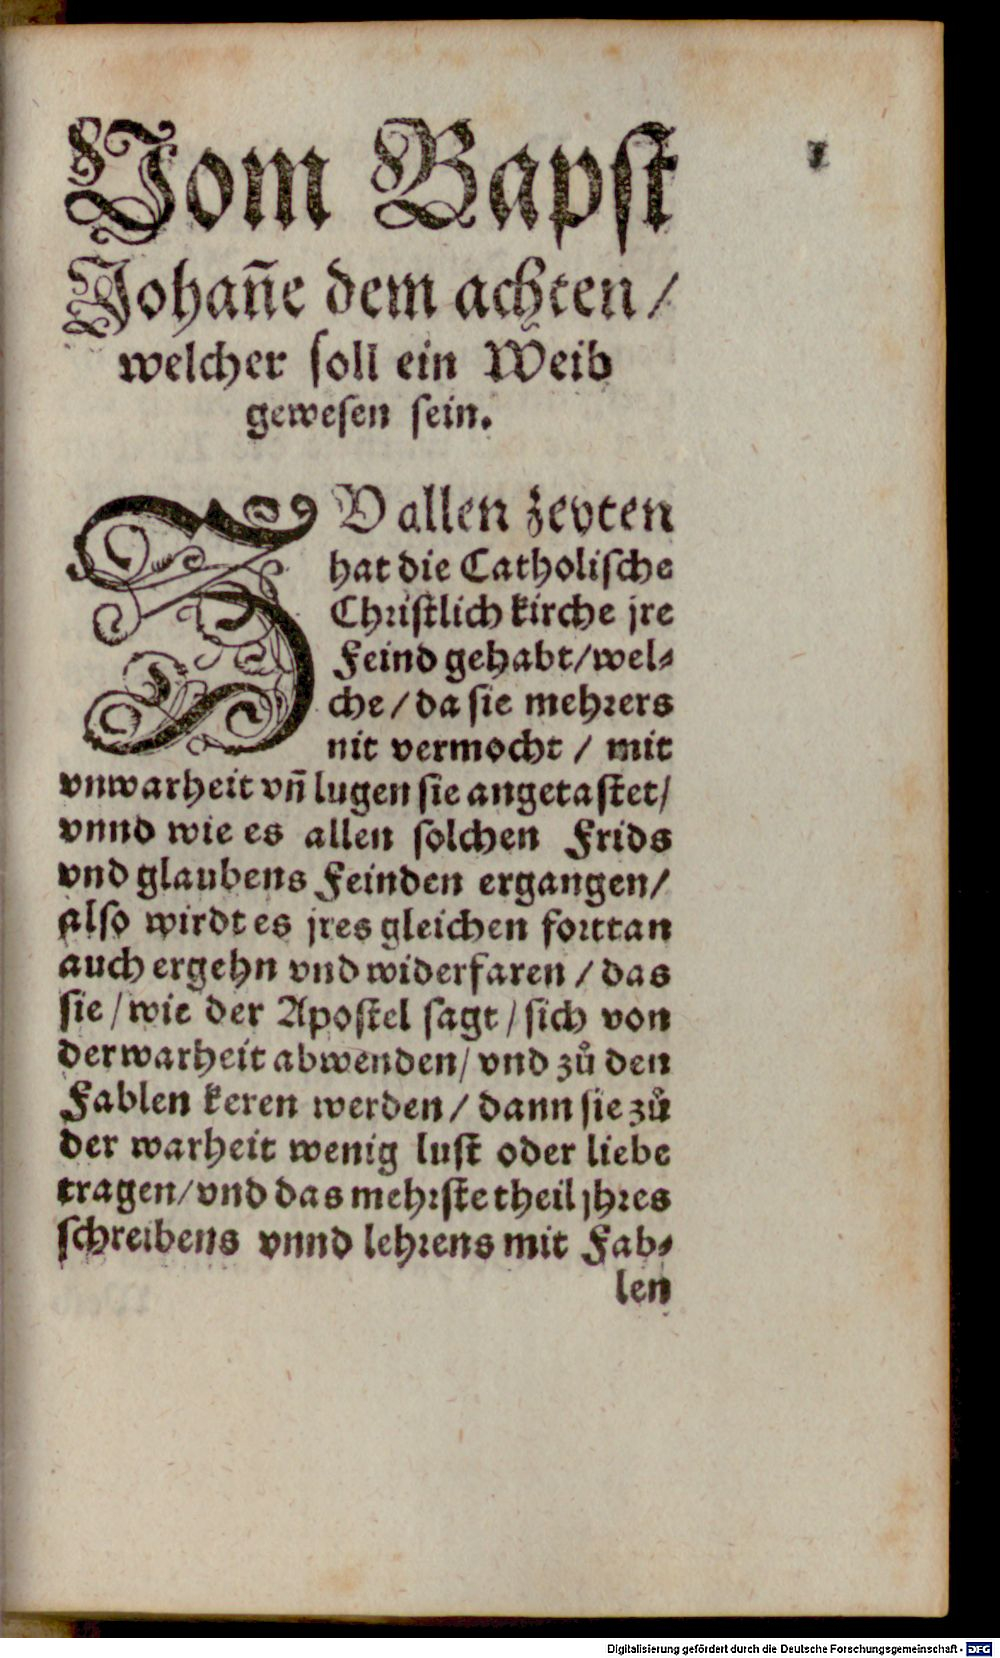 Vom Bapst
1
Johan̄e dem achten /
welcher soll ein Weib
gewesen sein.
ZV allen zeyten
hat die Catholische
Christlich kirche jre
Feind gehabt / wel-
che / da sie mehrers
nit vermocht / mit
vnwarheit vn̄ lugen sie angetastet /
vnnd wie es allen solchen Frids
vnd glaubens Feinden ergangen /
also wirdt es jres gleichen forttan
auch ergehn vnd widerfaren / das
sie / wie der Apostel sagt / sich von
der warheit abwenden / vnd zů den
Fablen keren werden / dann sie zů
der warheit wenig lust oder liebe
tragen / vnd das mehrste theil jhres
schreibens vnnd lehrens mit Fab-
len
Digitalisierung gefördert durch die Deutsche Forschungsgemeinschaft - DFG